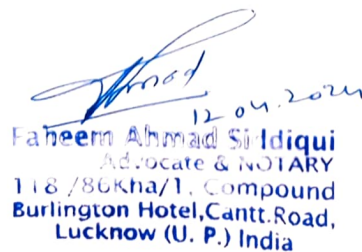 Ahmad
12.04.2024
Faheem Ahmad Siddiqui
Advocate & NOTARY
118/86Kha/1, Compound
Burlington Hotel,Cantt.Road,
Lucknow (U. P.) India